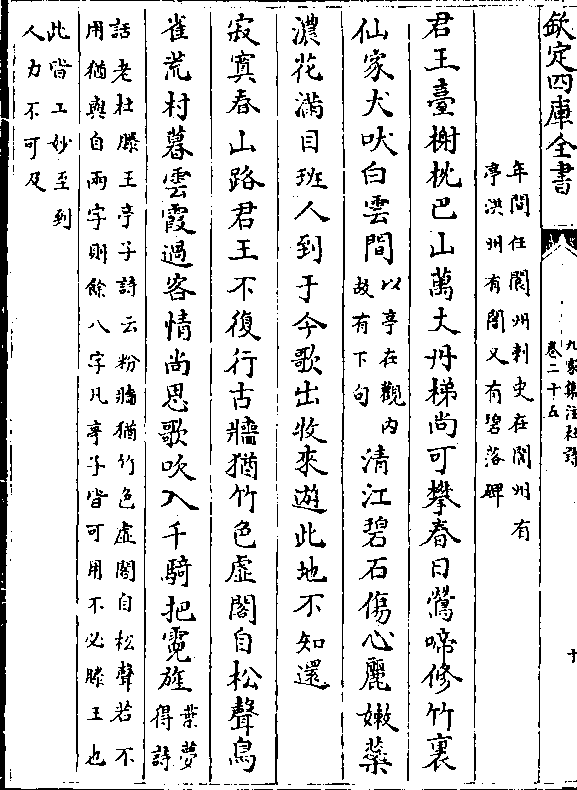 欽定四庫全書
九家集注杜詩
卷二十五
十
年間任閬州刺史在閬州有
亭洪州有閣又有碧落碑
君王臺榭枕巴山萬丈丹梯尚可攀春日鶯啼修竹裏
仙家犬吠白雲間
以亭在觀内
故有下句
清江碧石傷心麗嫩蘂
濃花滿目班人到于今歌出牧來遊此地不知還
寂寞春山路君王不復行古牆猶竹色虛閣自松聲鳥
雀荒村暮雲霞過客情尚思歌吹入千騎把霓旌
葉夢
得詩
話老杜滕王亭子詩云粉牆猶竹色虛閣自松聲若不
用猶與自兩字則餘八字凡亭子皆可用不必滕王也
此皆工妙至到
人力不可及